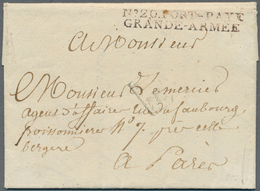 No 26. PORT-PAYÉ
GRANDE-ARMÉE
A Monsieur
Monsieur Temeries
agent d'affaire rue du faubourg
poissonniere No 7. pres celle
bergere
a Paris